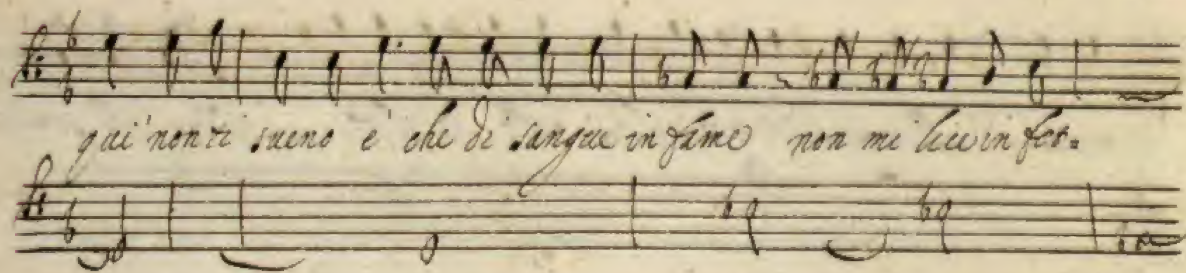 qui non ti sueno è che di sangue infame non mi lice in fos=